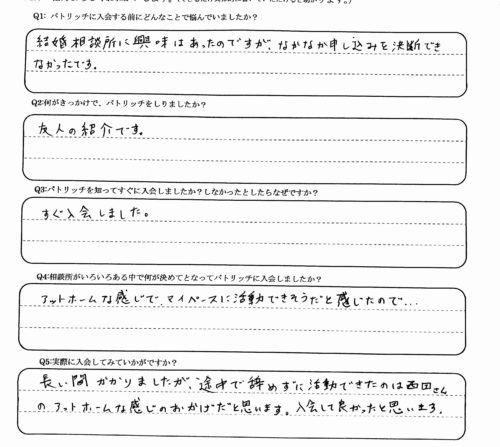 Q1: パトリッチに入会する前にどんなことで悩んでいましたか？
結婚相談所に興味はあったのですが、なかなか申し込みを決断でき
なかったです。
Q2:何がきっかけで、パトリッチをしりましたか？
友人の紹介です。
Q3:パトリッチを知ってすぐに入会しましたか？しなかったとしたらなぜですか？
すぐ入会しました。
Q4:相談所がいろいろある中で何が決めてとなってパトリッチに入会しましたか？
アットホームな感じで、マイペースに活動できそうだと感じたので…
Q5:実際に入会してみていかがですか？
長い間かかりましたが、途中で辞めずに活動できたのは西田さん
のアットホームな感じのおかげだと思います。入会して良かったと思います。